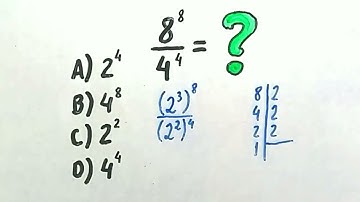 8⁸/4⁴ = ?
A) 2⁴
B) 4⁸
C) 2²
D) 4⁴
(2³)⁸/(2²)⁴
8 | 2
4 | 2
2 | 2
1 |